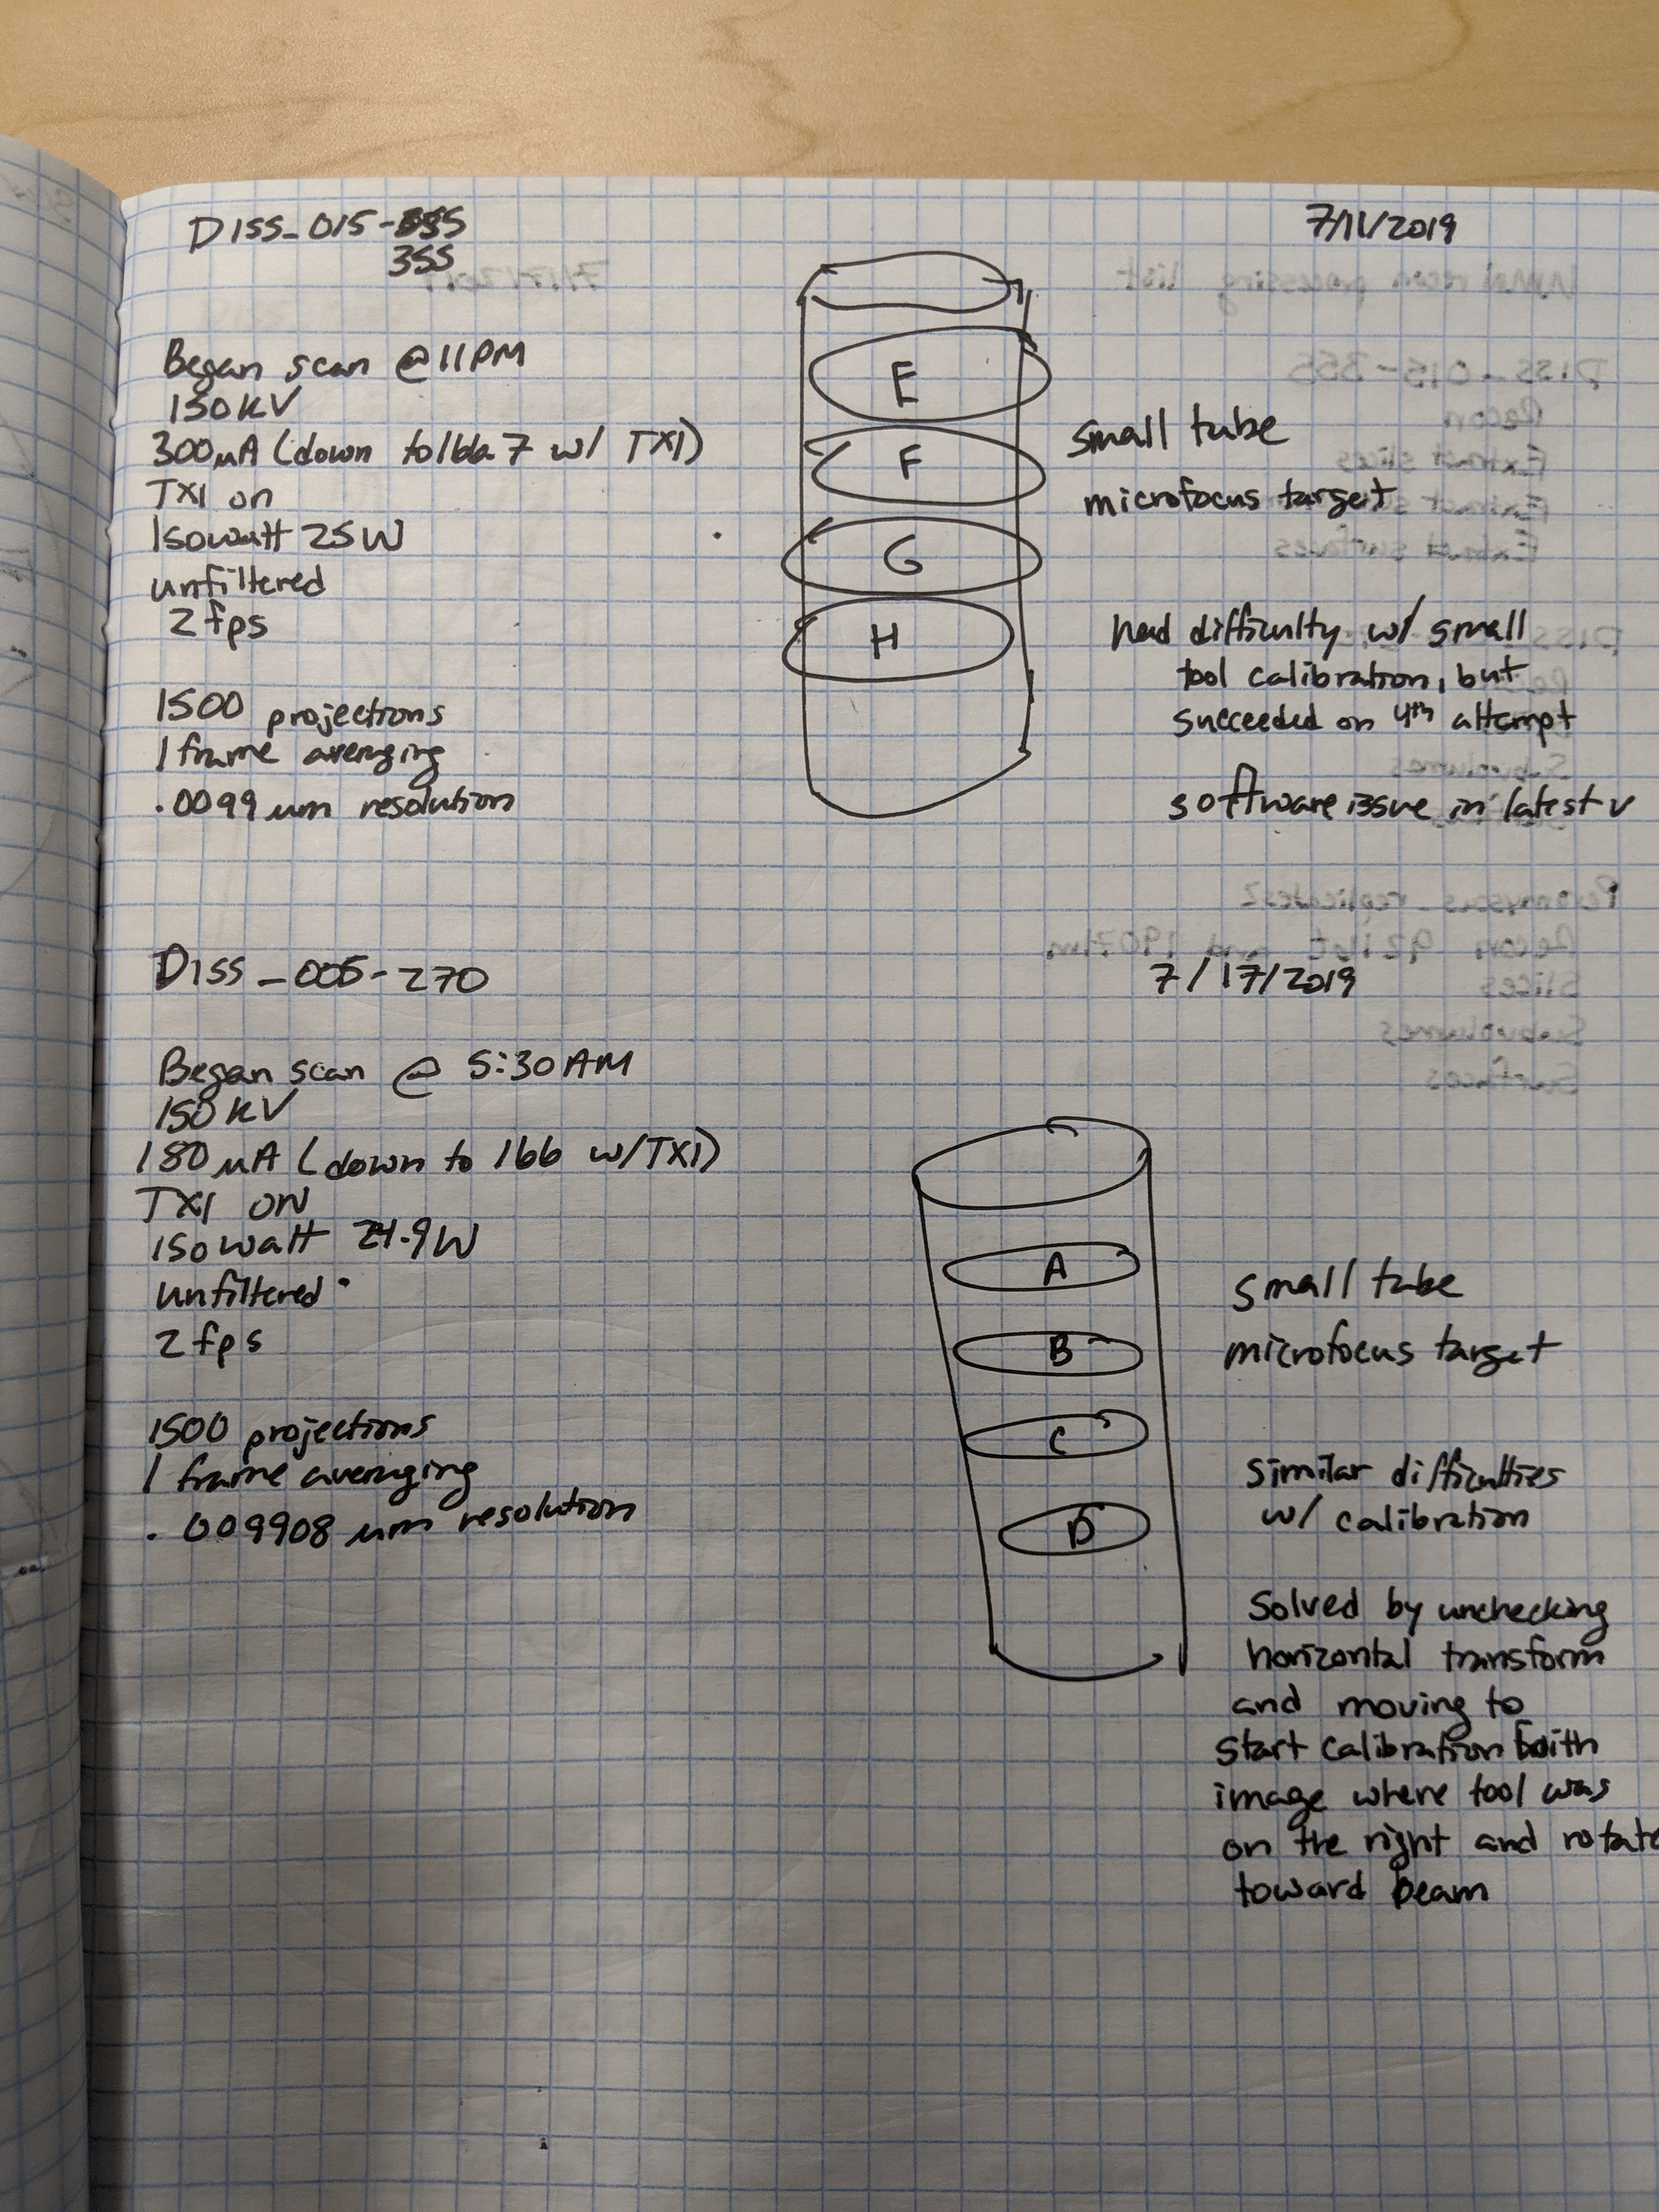 DISS_015-
355
7/11/2019
Began scan @ 11PM
150KV
300µA (down to 166.7 w/ TXI)
TXI on
Isowatt 25W
unfiltered
2 fps
1500 projections
1 frame averaging
.0099 um resolution
E
F
G
H
small tube
microfocus target
had difficulty w/ small
tool calibration, but
succeeded on 4th attempt
software issue in latest v
DISS_005-270
7/17/2019
Began scan @ 5:30AM
150KV
180µA (down to 166 w/TXI)
TXI ON
Isowatt 24.9W
unfiltered
2 fps
1500 projections
1 frame averaging
.009908 um resolution
A
B
C
D
small tube
microfocus target
similar difficulties
w/ calibration
Solved by unchecking
horizontal transform
and moving to
start calibration with
image where tool was
on the right and rotate
toward beam